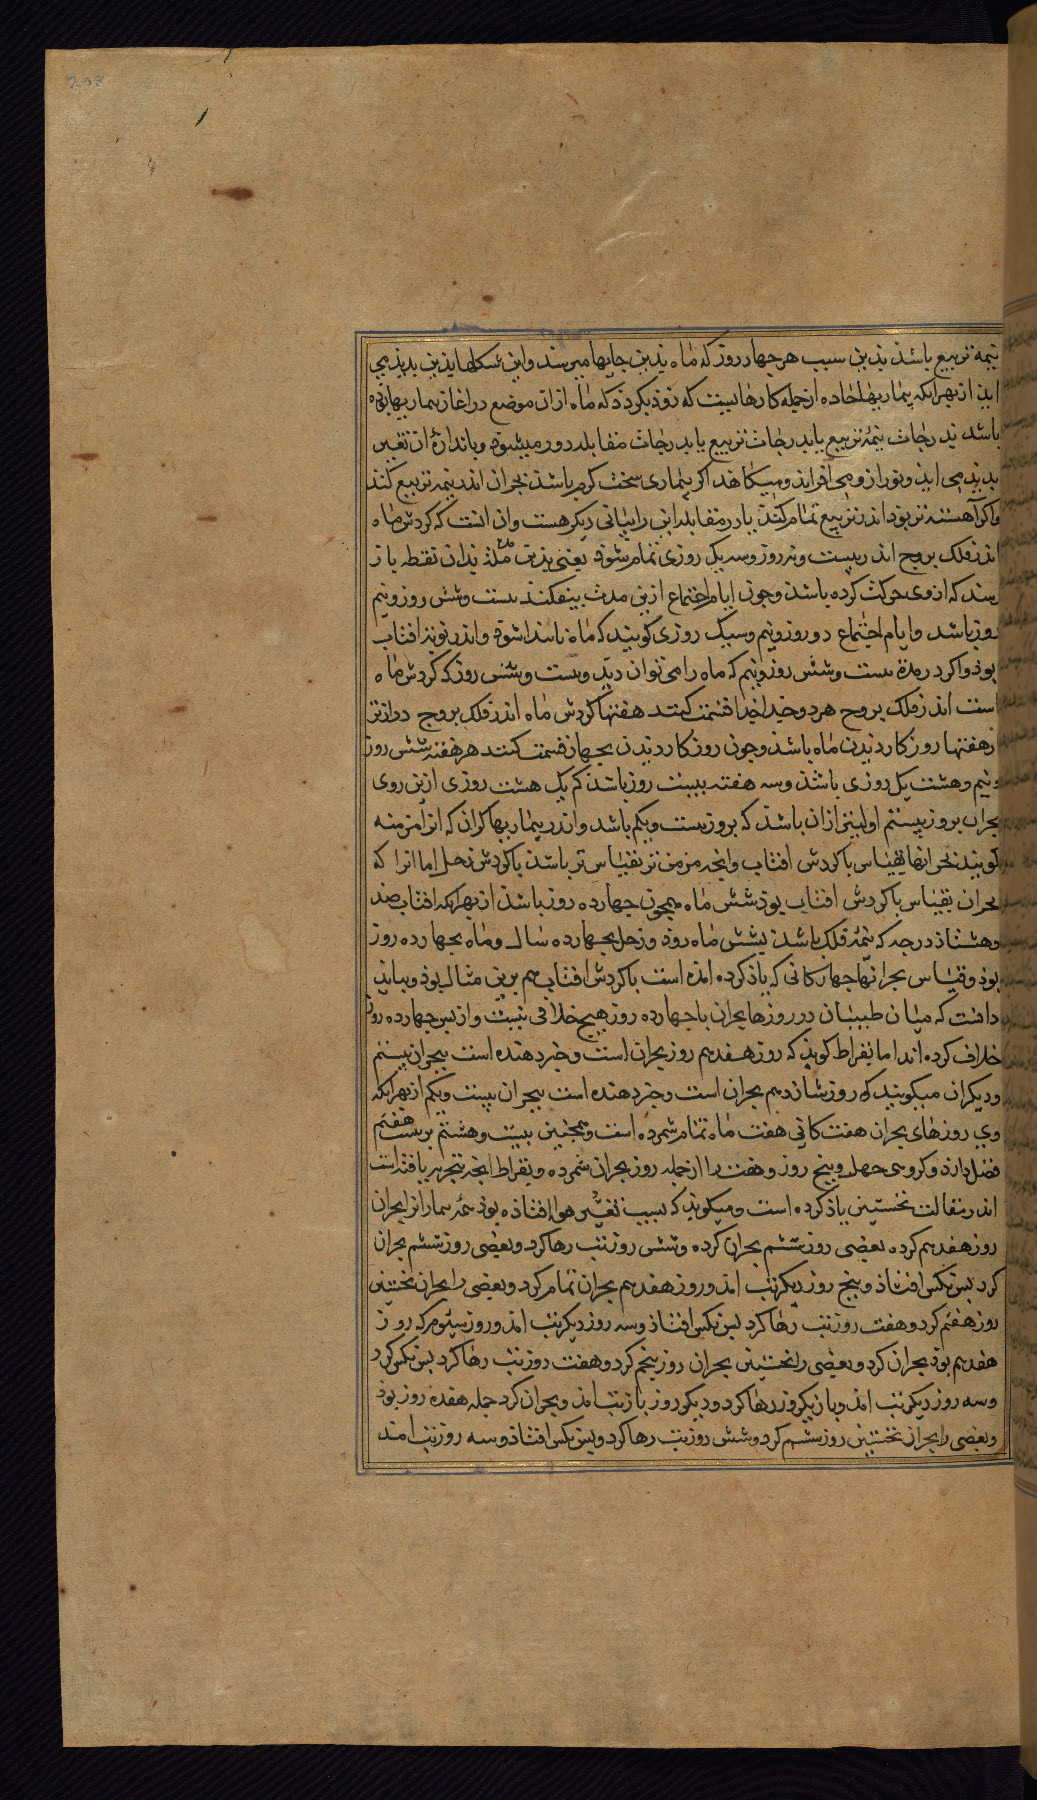 نیمه تربیع باشذ بذین سبب هر چهار روز که ماه بذین جایها میرسد و این شکلها بذین بدیذ می
ایذ از بهر انکه بیماریها حاده از جمله کارهائیست که زوذ بگردذ که ماه از ان موضع در اغاز بیماریها بوده
باشد بدرجات نیمۀ تربیع یا بدرجات تربیع یا بدرجات مقابله دور میشوذ و باندازۀ ان تغیر
بدیذ می ایذ و نور از و می افزاید و میکاهد اکر بیماری سخت کرم باشذ بحران اندر نیمه تربیع کند
و اکر آهسته تر بوذ اندر تربیع تمام کند یا در مقابله این را بیانی دیکر هست و ان انست که کردش ماه
اندر فلک بروج اندر بیست و نه روز و سه یک روزی تمام شوذ یعنی بذین مدت بذان نقطه باز
رسد که از وی حرکت کرده باشذ و چون ایام اجتماع ازین مدت بیفکند بیست و شش روز و نیم
روز باشد و ایام اجتماع دو روز و نیم و سیک روزی کویند که ماه ناپیدا شوذ و اندر نور افتاب
بوذ و اکر در مدۀ بیست و شش روز و نیم که ماه را می توان دید و بیست و شش روز که کردش ماه
است اندر فلک بروج هر دو جدا جدا قسمت کنند هفتها کردش ماه اندر فلک بروج درازتر
از هفتها روزکار دیدن ماه باشذ و چون روزکار دیدن بچهار قسمت کنند هر هفته شش روز
و نیم و هشت یک روزی باشذ و سه هفته بیست روز باشد کم یک هشت روزی ازین روی
بحران بروز بیستم اولیتر ازان باشذ که بروز بیست و یکم باشد و اندر بیماریها کران که انرا مزمنه
کویند بحرانها بقیاس با کردش افتاب و انچه مزمن تر بقیاس تر باشذ با کردش زحل اما انرا که
بحران بقیاس با کردش افتاب بوذ شش ماه همچون چهارده روز باشذ از بهر انکه افتاب صد
و هشتاذ درجه که نیمۀ فلک باشذ بشش ماه روذ و زحل بچهارده سال و ماه بچهارده روز
بوذ و قیاس بحرانها چهارکانی که یاذ کرده امذه است با کردش افتاب هم برین مثال بوذ و بباید
دانست که میان طبیبان در روزها بحران با چهارده روز هیچ خلافی نیست و از پس چهارده روز
خلاف کرده اند اما بقراط کویذ که روز هفدهم روز بحران است و خبر دهنده است ببحران بیستم
و دیکران میکویند که روز شازدهم بحران است و خبر دهنده است ببحران بیست و یکم از بهر انکه
وی روزهای بحران هفت کانی هفت ماه تمام شمرده است و همچنین بیست و هشتم بر بیست هفتم
فضل دارذ و کروهی چهل و پنج روز و هفت را از جمله روز بحران شمرده و بقراط انچه بتجربه یافته است
اندر مقالت نخستین یاذ کرده است و میکویذ که بسبب تغیر هوا افتاذه بوذ همه بیماران را بحران
روز هفدهم کرده بعضی روز ششم بحران کرده و شش روز تب رها کرد و بعضی روز ششم بحران
کرد پس نکس افتاذ و پنج روز دیکر تب امد و روز هفدهم بحران تمام کرد و بعضی را بحران نخستین
روز هفتم کرد و هفت روز تب رها کرد پس نکس افتاذ و سه روز دیکر تب امد و روز سیوم که روز
هفدهم بوذ بحران کرد و بعضی را نخستین بحران روز پنجم کرد و هفت روز تب رها کرد پس نکس کرد
و سه روز دیکر تب امذ و باز یکروز رها کرد و دیکر روز باز تب امذ و بحران کرد جمله هفده روز بوذ
و بعضی را بحران نخستین روز ششم کرد و شش روز تب رها کرد و پس نکس افتاذ و سه روز تب امد